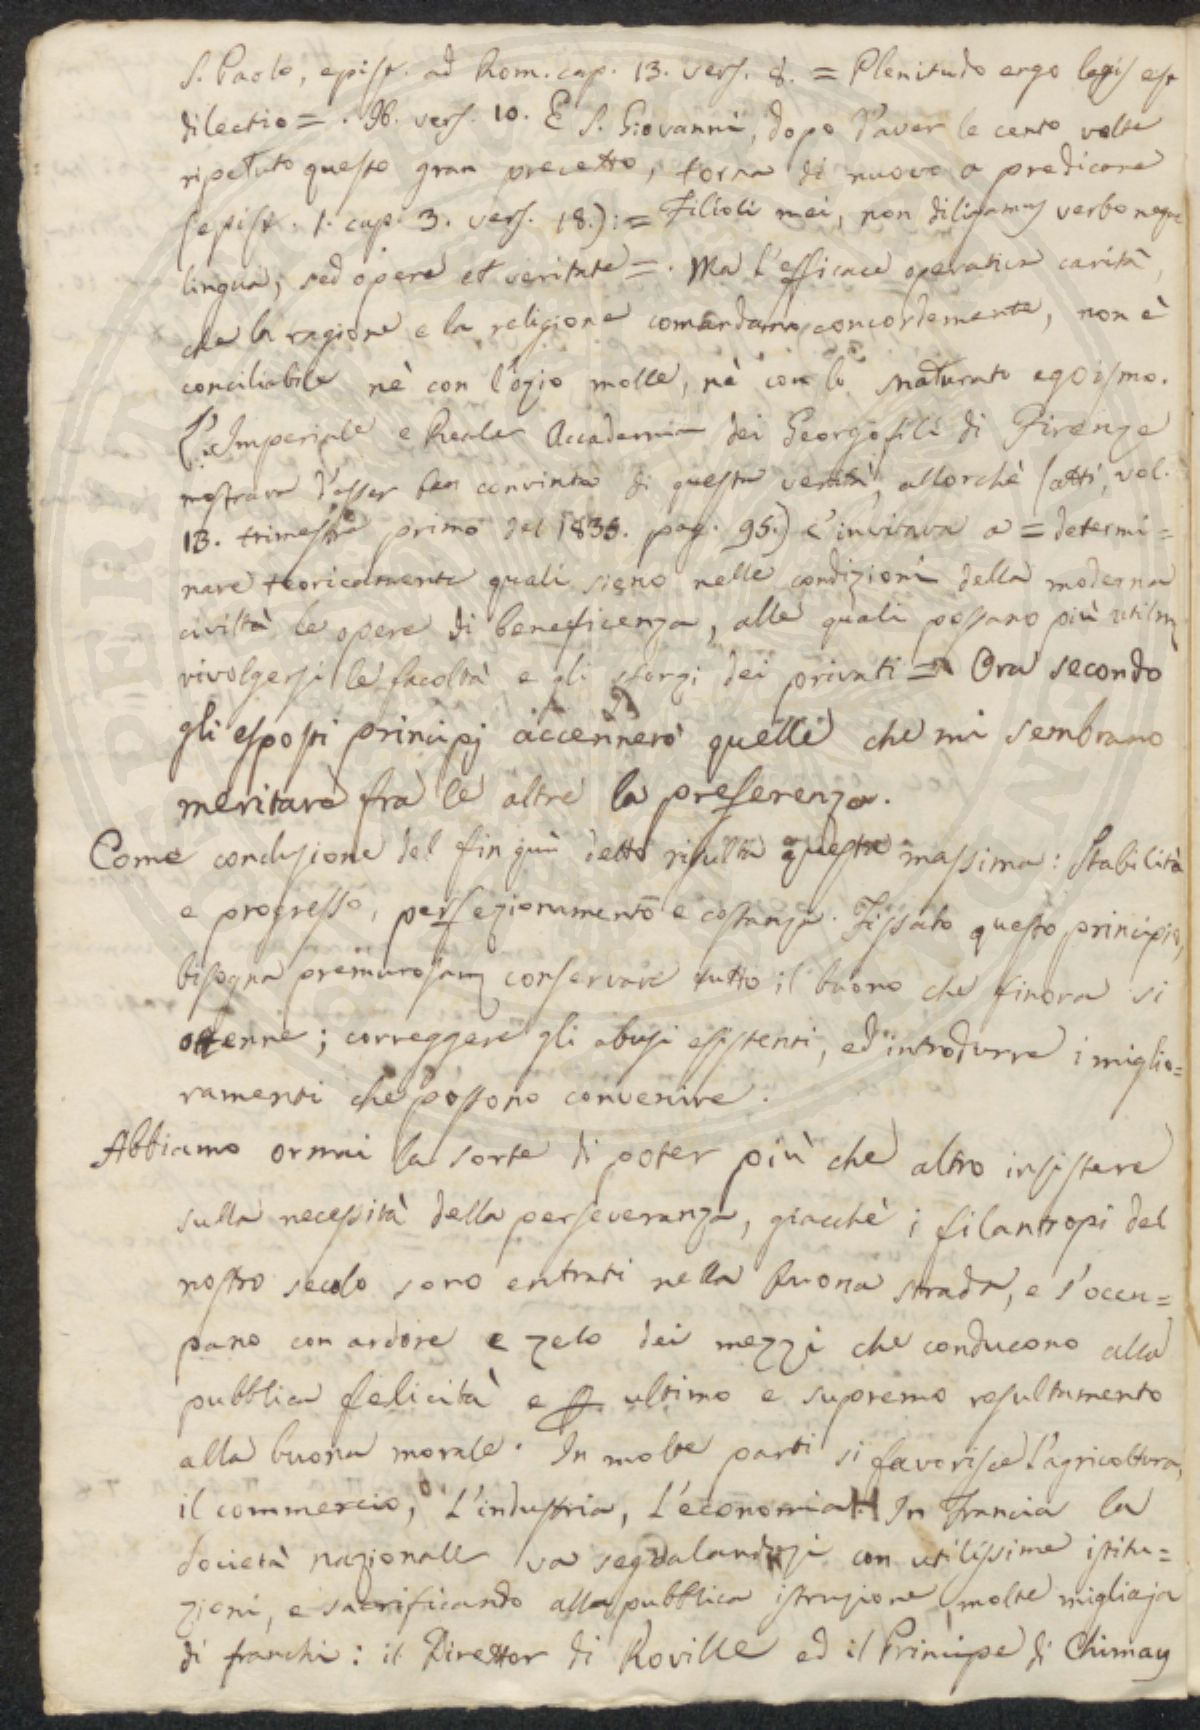 S. Paolo, epist. ad Rom. cap. 13. vers. 8. = Plenitudo ergo legis est
dilectio =. Ib. vers. 10. E S. Giovanni, dopo d'aver le cento volte
ripetuto questo gran precetto, torna di nuovo a predicare
(epist. 1. cap. 3. vers. 18.): = Filioli mei, non diligamus verbo neque
lingua, sed opere et veritate =. Ma l'efficace operativa carità,
che la ragione e la religione comandano concordemente, non è
conciliabile nè con l'ozio molle, nè con lo snaturato egoismo.
L'Imperiale e Reale Accademia dei Georgofili di Firenze
mostrava d'esser ben convinta di questa verità, allorchè (atti, vol.
13. trimestre primo del 1835. pag. 95.) c'invitava a = determi=
nare teoricamente quali sieno nelle condizioni della moderna
civiltà le opere di beneficenza, alle quali possano più utilm
rivolgersi le facoltà e gli sforzi dei privati = Ora secondo
gli esposti principj accennerò quelle che mi sembrano
meritare fra le altre la preferenza.
Come conclusione del fin quì detto risulta questa massima: Stabilità
e progresso, perfezionamento e costanza. Fissato questo principio,
bisogna premurosam conservare tutto il buono che finora si
ottenne; correggere gli abusi esistenti, ed introdurre i miglio=
ramenti che possono convenire.
Abbiamo ormai la sorte di poter più che altro insistere
sulla necessità della perseveranza, giacchè i filantropi del
nostro secolo sono entrati nella buona strada, e s'occu=
pano con ardore e zelo dei mezzi che conducono alla
pubblica felicità e ultimo e supremo resultamento
alla buona morale. In molte parti si favorisce l'agricoltura,
il commercio, l'industria, l'economia. In Francia la
Società nazionale va segnalandosi con utilissime istitu=
zioni, e sacrificando alla pubblica istruzione molte migliaja
di franchi: il Direttor di Roville ed il Principe di Chimay